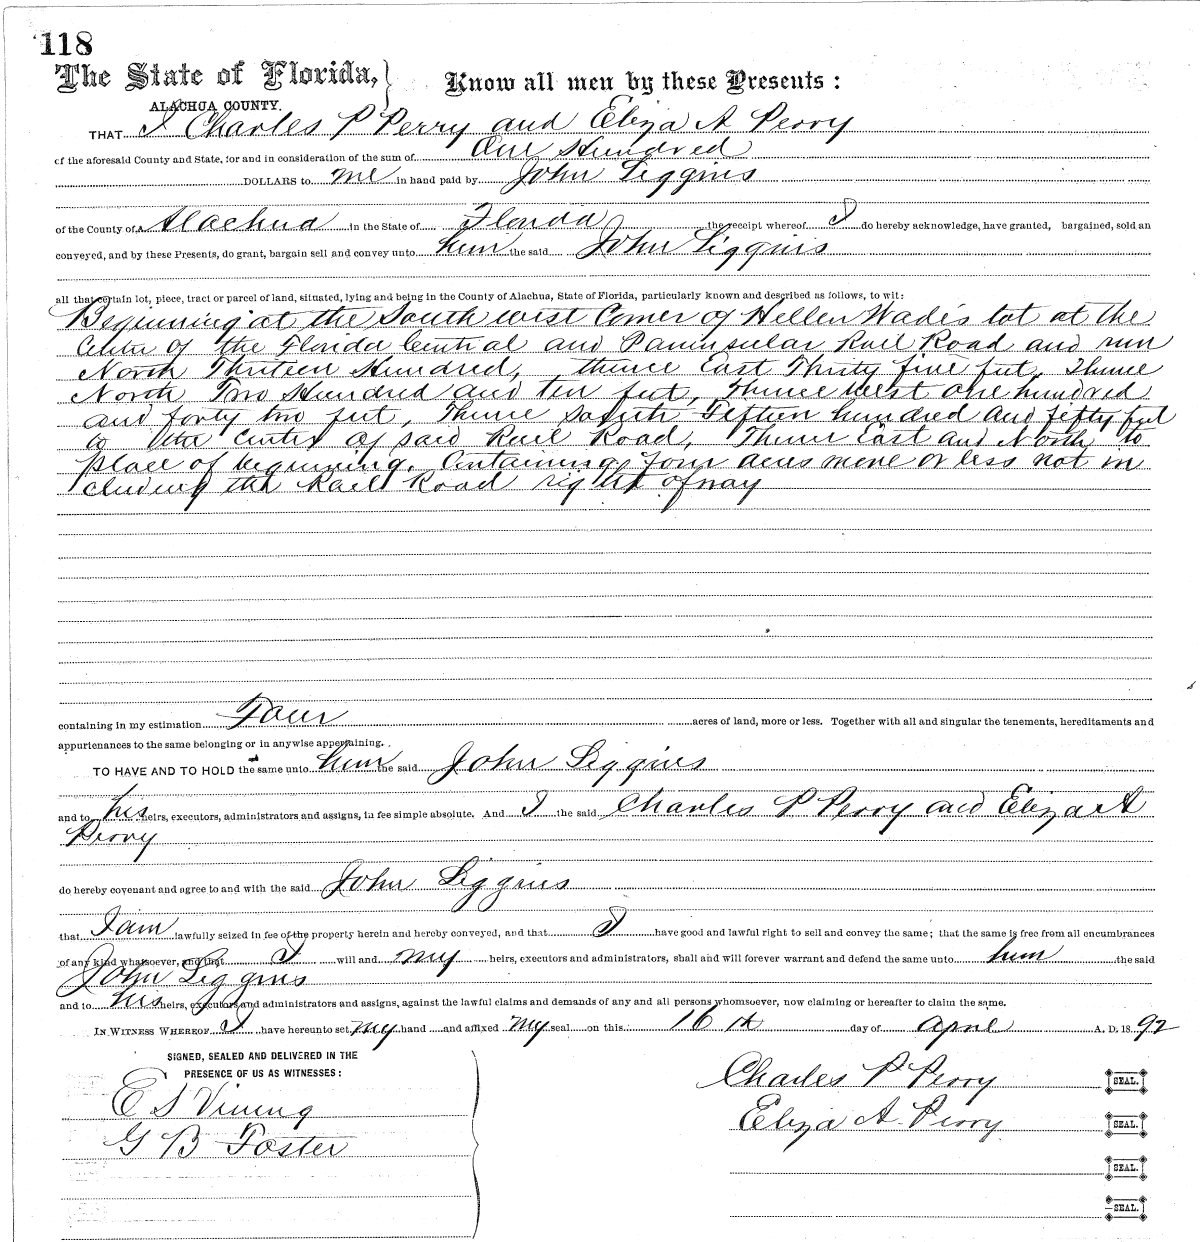 118
The State of Florida, } Know all men by these Presents:
ALACHUA COUNTY.
THAT I Charles P Perry and Eliza A Perry
of the aforesaid County and State, for and in consideration of the sum of One Hundred
DOLLARS to me in hand paid by John Liggins
of the County of Alachua in the State of Florida the receipt whereof I do hereby acknowledge, have granted, bargained, sold an
conveyed, and by these Presents, do grant, bargain sell and convey unto him the said John Liggins
all that certain lot, piece, tract or parcel of land, situated, lying and being in the County of Alachua, State of Florida, particularly known and described as follows, to wit:
Beginning at the South west Corner of Hellen Wade's lot at the
Center of the Florida Central and Paninsular Rail Road and run
North Thirteen Hundred, thence East Thirty five feet, Thence
North Two Hundred and ten feet, Thence West one hundred
and forty two feet, Thence South Fifteen hundred and fefty feet
to the Center of said Rail Road, Thence East and North to
place of beginning. Containing Four acres more or less not in
cluding the Rail Road right of way
containing in my estimation Four acres of land, more or less. Together with all and singular the tenements, hereditaments and
appurtenances to the same belonging or in anywise appertaining.
TO HAVE AND TO HOLD the same unto him the said John Liggins
and to his heirs, executors, administrators and assigns, in fee simple absolute. And I the said Charles P Perry and Eliza A
Perry
do hereby covenant and agree to and with the said John Liggins
that I am lawfully seized in fee of the property herein and hereby conveyed, and that I have good and lawful right to sell and convey the same; that the same is free from all encumbrances
of any kind whatsoever, and that I will and my heirs, executors and administrators, shall and will forever warrant and defend the same unto him the said
John Liggins
and to his heirs, executors and administrators and assigns, against the lawful claims and demands of any and all persons whomsoever, now claiming or hereafter to claim the same.
IN WITNESS WHEREOF I have hereunto set my hand and affixed my seal on this 16th day of April A. D. 1892
SIGNED, SEALED AND DELIVERED IN THE
PRESENCE OF US AS WITNESSES:
Charles P Perry SEAL.
E S Vining
Eliza A. Perry SEAL.
G B Foster
SEAL.
SEAL.